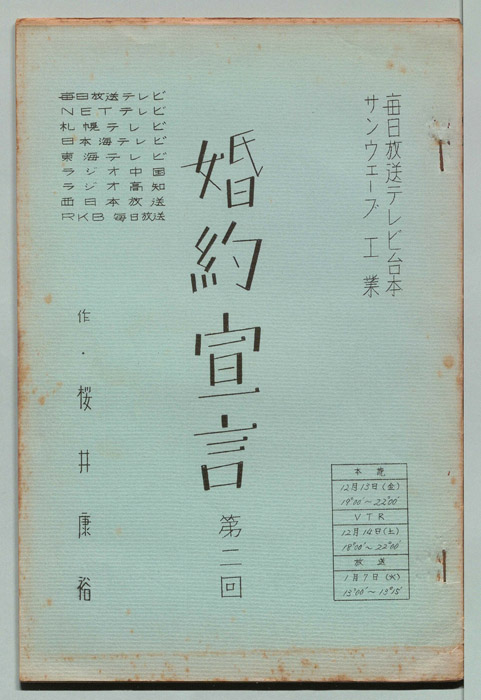 毎日放送テレビ台本
サンウェーブ工業
婚約宣言
第二回
毎日放送テレビ
NETテレビ
札幌テレビ
日本海テレビ
東海テレビ
ラジオ中国
ラジオ高知
西日本放送
RKB毎日放送
作・桜井康裕
本読
12月13日(金)
19°00'~22°00'
VTR
12月14日(土)
18°00'~22°00'
放送
1月7日(火)
13°00'~13°15'